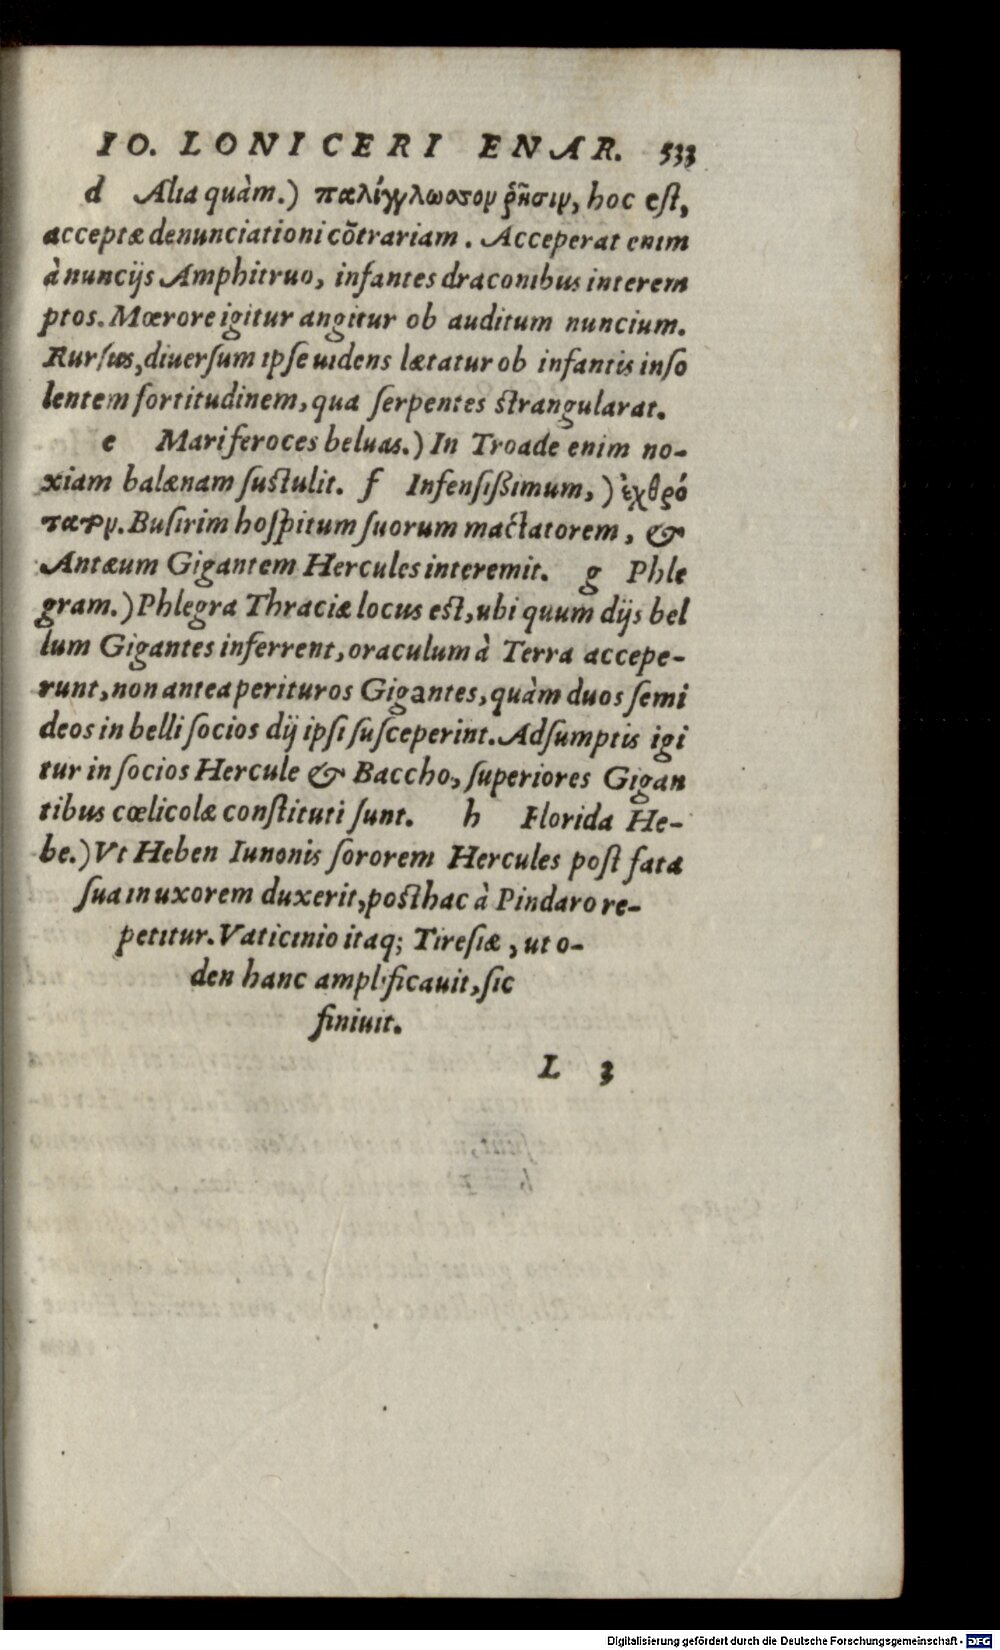 IO. LONICERI ENAR. 533
d Alia quàm.) παλίγγλωσσον ῥῆσιν, hoc est,
acceptæ denunciationi cõtrariam. Acceperat enim
à nuncijs Amphitruo, infantes draconibus interem
ptos. Mœrore igitur angitur ob auditum nuncium.
Rursus, diuersum ipse uidens lætatur ob infantis inso
lentem fortitudinem, qua serpentes strangularat.
e Mariferoces beluas.) In Troade enim no-
xiam balænam sustulit. f Infensißimum,) ἐχθρό
τατον. Busirim hospitum suorum mactatorem, &
Antæum Gigantem Hercules interemit. g Phle
gram.) Phlegra Thraciæ locus est, ubi quum dijs bel
lum Gigantes inferrent, oraculum à Terra accepe-
runt, non antea perituros Gigantes, quàm duos semi
deos in belli socios dij ipsi susceperint. Adsumptis igi
tur in socios Hercule & Baccho, superiores Gigan
tibus cœlicolæ constituti sunt. h Florida He-
be.) Vt Heben Iunonis sororem Hercules post fata
sua in uxorem duxerit, posthac à Pindaro re-
petitur. Vaticinio itaq; Tiresiæ, ut o-
den hanc amplificauit, sic
finiuit.
L 3
Digitalisierung gefördert durch die Deutsche Forschungsgemeinschaft - DFG